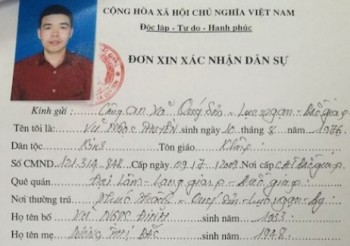 CỘNG HÒA XÃ HỘI CHỦ NGHĨA VIỆT NAM
Độc lập - Tự do - Hanh phúc
ĐƠN XIN XÁC NHẬN DÂN SỰ
Kính gửi : Công an xã Quý Sơn - Lục ngạn - Bắc giang
Tên tôi là: Vũ Ngọc sinh ngày 10 tháng 8 năm 1986
Dân tộc Kinh Tôn giáo Không
Số CMND 121.314.842 Cấp ngày Nơi cấp CA Bắc giang
Quê quán Đại Lâm - Lạng giang - Bắc giang
Nơi thường trú - Quý Sơn - Lục ngạn - Bg
Họ tên bố Vũ Ngọc sinh năm : 1953
Họ tên mẹ sinh năm : 1948